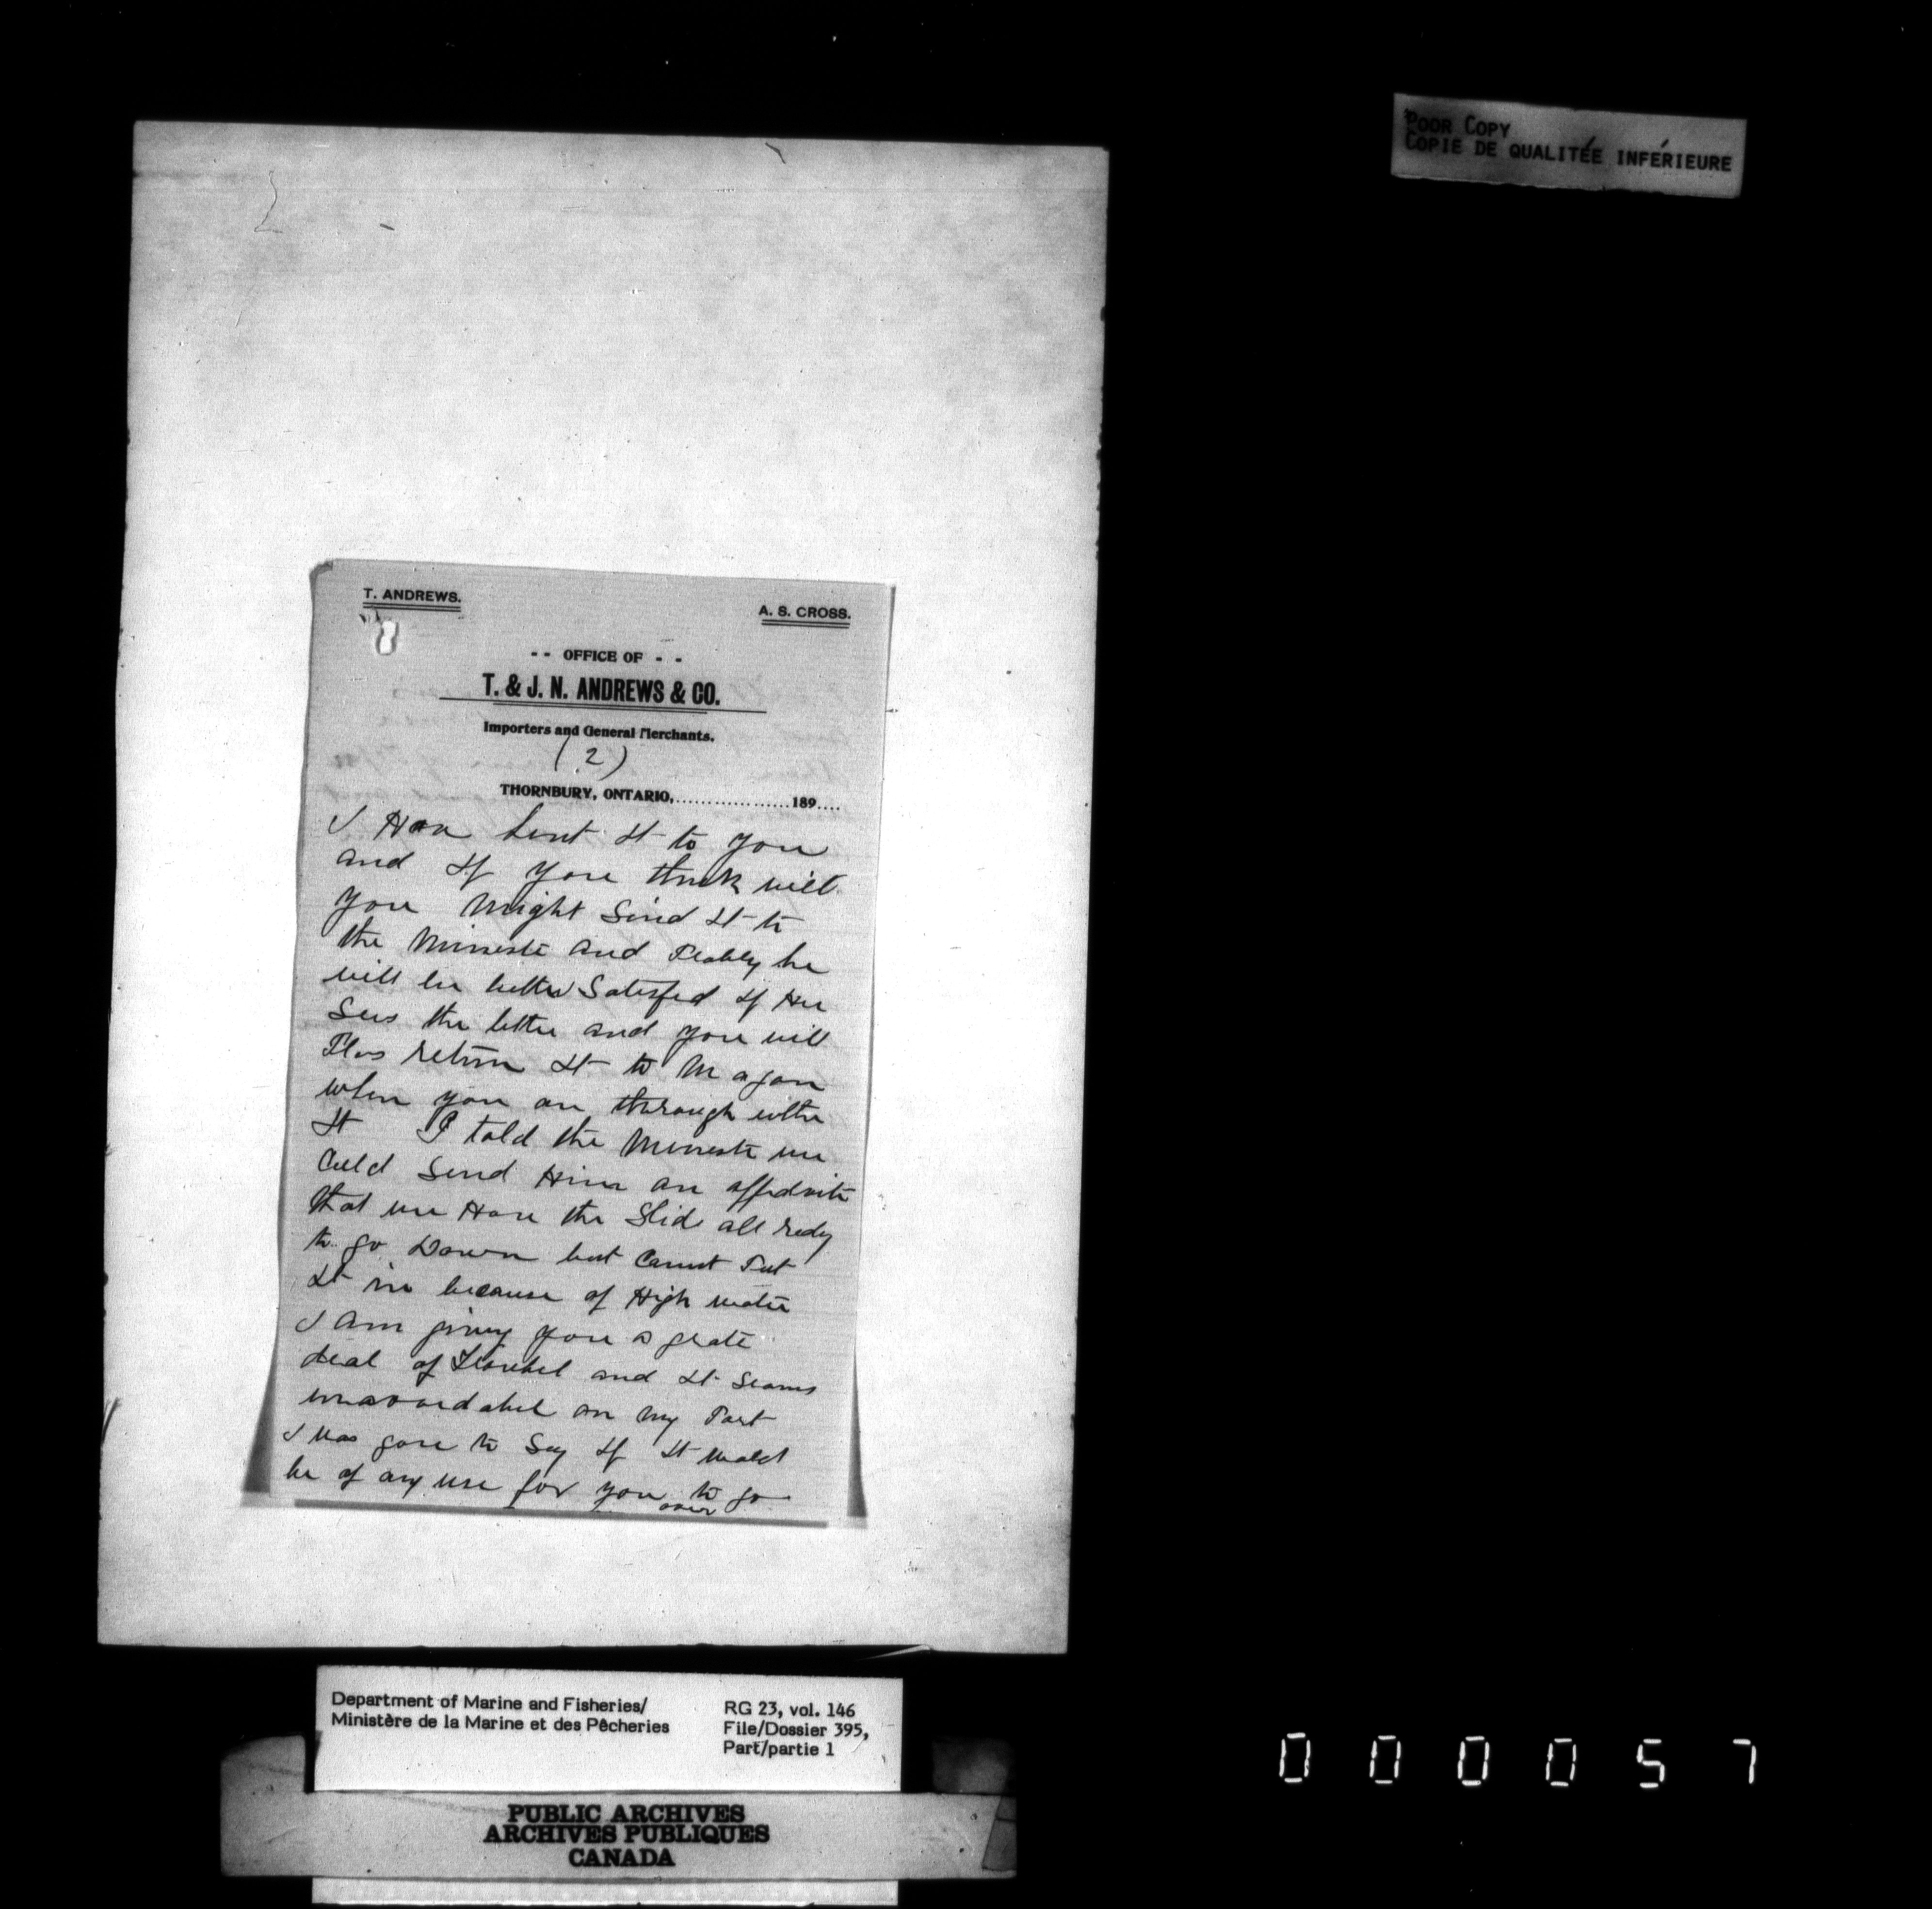 POOR COPY
COPIE DE QUALITÉE INFÉRIEURE
T. ANDREWS.
A. S. CROSS.
-- OFFICE OF --
T. & J. N. ANDREWS & CO.
Importers and General Merchants.
(2)
THORNBURY, ONTARIO,..................189....
I Hav sent It to you
and If you think will
you Might Send It to
the Mineste and Probly he
will be better Satesfed If He
Sees the letter and you will
Plas return It to M agan
when you are through withe
It I told the Mineste we
Culd Send Him an affedvite
that we Have the Slide all redy
to go Down but Canut Put
It in because of High water
I Am giving you a grate
deal of Troubel and It Seams
unavoidabel on My Part
I was gone to Say If It wold
be of any use for you to go
over
Department of Marine and Fisheries/
Ministère de la Marine et des Pêcheries
RG 23, vol. 146
File/Dossier 395,
Part/partie 1
PUBLIC ARCHIVES
ARCHIVES PUBLIQUES
CANADA
000057